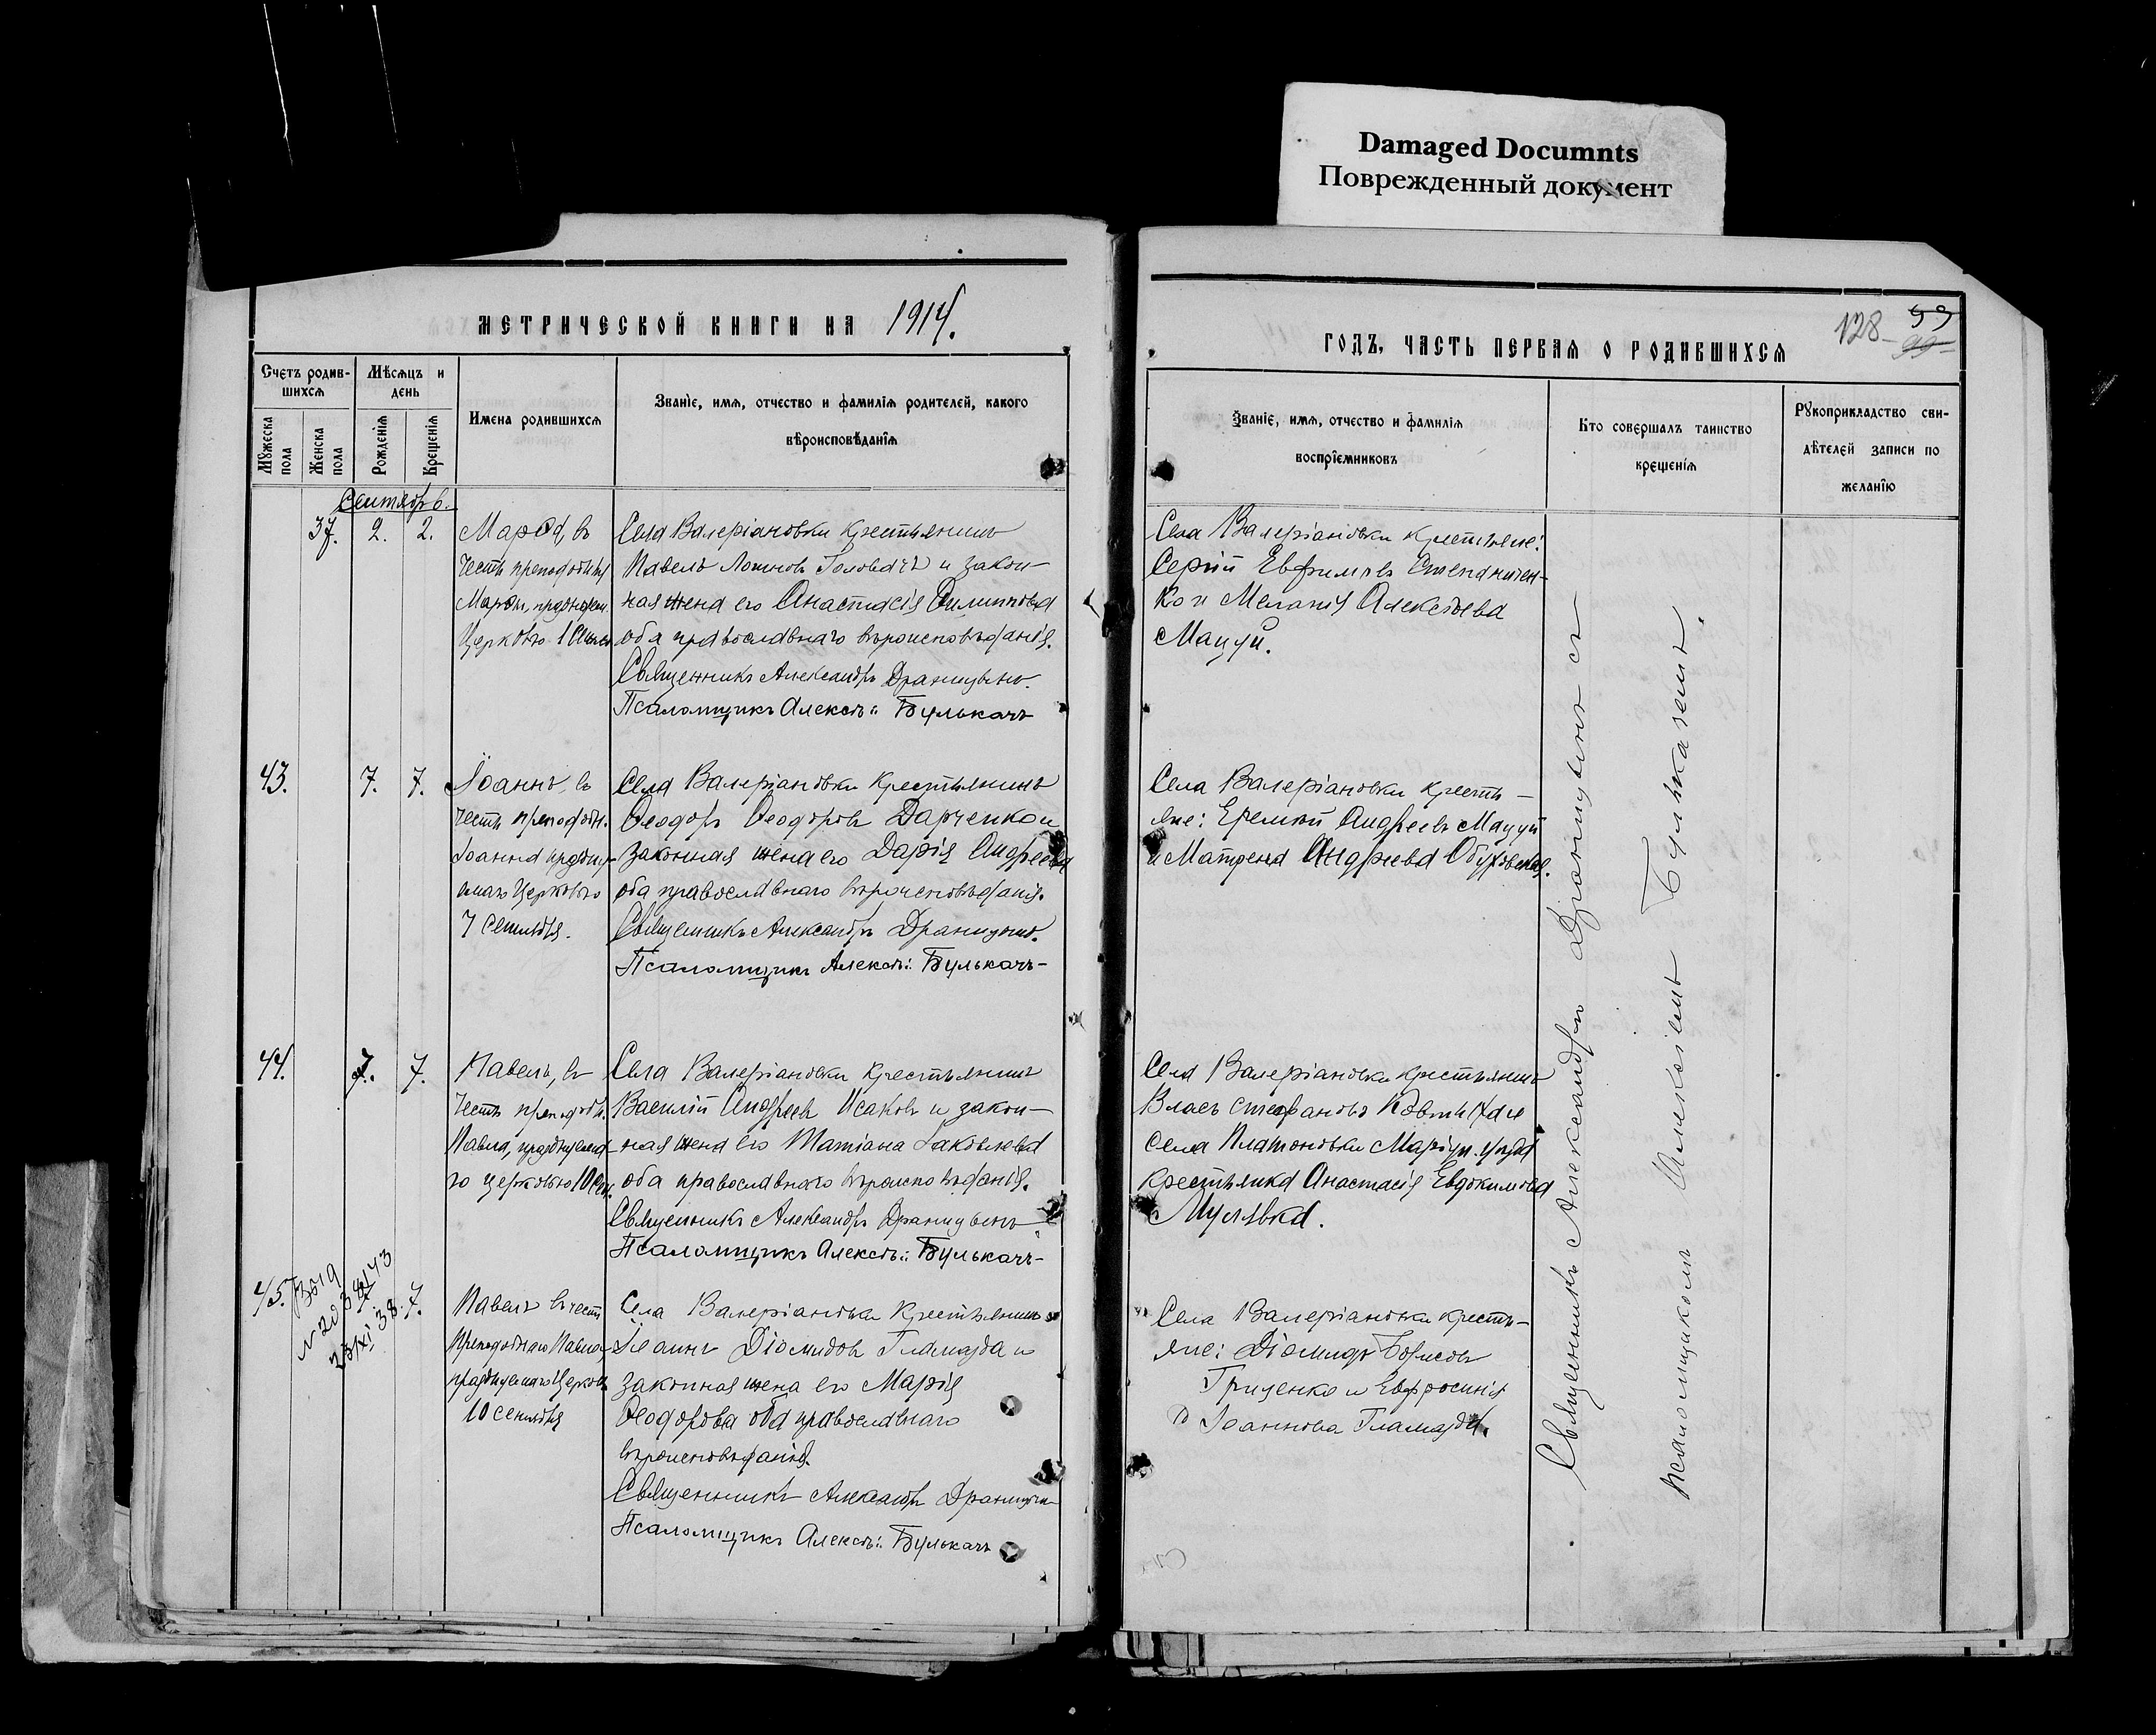 Damaged Documnts
Поврежденный документ
МЕТРИЧЕСКОЙ КНИГИ НА 1914.
Счетъ родив-
шихся
Мѣсяцъ и
день
Имена родившихся
Званіе, имя, отчество и фамилія родителей, какого
вѣроисповѣданія
Мужеска
пола
Женска
пола
Рожденія
Крещенія
Сентябрь.
37. 2. 2.
Села Валеріановки крестьянинъ
Павелъ Головачъ и закон-
ная жена его Анастасія
оба православнаго вѣроисповѣданія.
Священникъ Александръ
Псаломщикъ Алексѣй Булькачъ
43. 7. 7.
Іоаннъ, въ
честь преподобн.
Іоанна праздну-
емаго Церковью
7 Сентября.
Села Валеріановки крестьянинъ
Ѳеодоръ Ѳеодоровъ Дарченко и
законная жена его Дарія Андреева
оба православнаго вѣроисповѣданія.
Священникъ Александръ
Псаломщикъ Алексѣй Булькачъ-
44. 7. 7.
Павелъ, въ
честь преподобн.
Павла, празднуема-
го церковью 10 Сен.
Села Валеріановки крестьянинъ
Василій Андреевъ Исаковъ и закон-
ная жена его Татіана Іаковлева
оба православнаго вѣроисповѣданія.
Священникъ Александръ
Псаломщикъ Алексѣй Булькачъ-
45. 7.
23/XI 38
Павелъ въ честь
Преподобнаго Павла,
празднуемаго Церковью
10 сентября
Села Валеріановки крестьянинъ
Іоаннъ Діомидовъ Гламазда и
законная жена его Марія
Ѳеодорова оба православнаго
вѣроисповѣданія.
Священникъ Александръ
Псаломщикъ Алексѣй Булькачъ
128-
99
ГОДЪ, ЧАСТЬ ПЕРВАЯ О РОДИВШИХСЯ
Званіе, имя, отчество и фамилія
воспріемниковъ
Кто совершалъ таинство
крещенія
Рукоприкладство сви-
дѣтелей записи по
желанію
Села Валеріановки крестьяне:
Сергій Евфимовъ Степаничен-
ко и Меланія Алексѣева
Мацуй.
Села Валеріановки кресть-
яне: Еремѣй Андреевъ Мацуй
и Матрена Андреева Обуховская.
Села Валеріановки крестьянинъ
Власъ Стефановъ
села Платоновки Маріуп. уѣзда
крестьянка Анастасія Евдокимова
Села Валеріановки кресть-
яне: Діомидъ Борисовъ
Гриценко и Евфросинія
Іоаннова Гламазда.
Священникъ Александръ съ
псаломщикомъ Алексіемъ Булькачемъ.